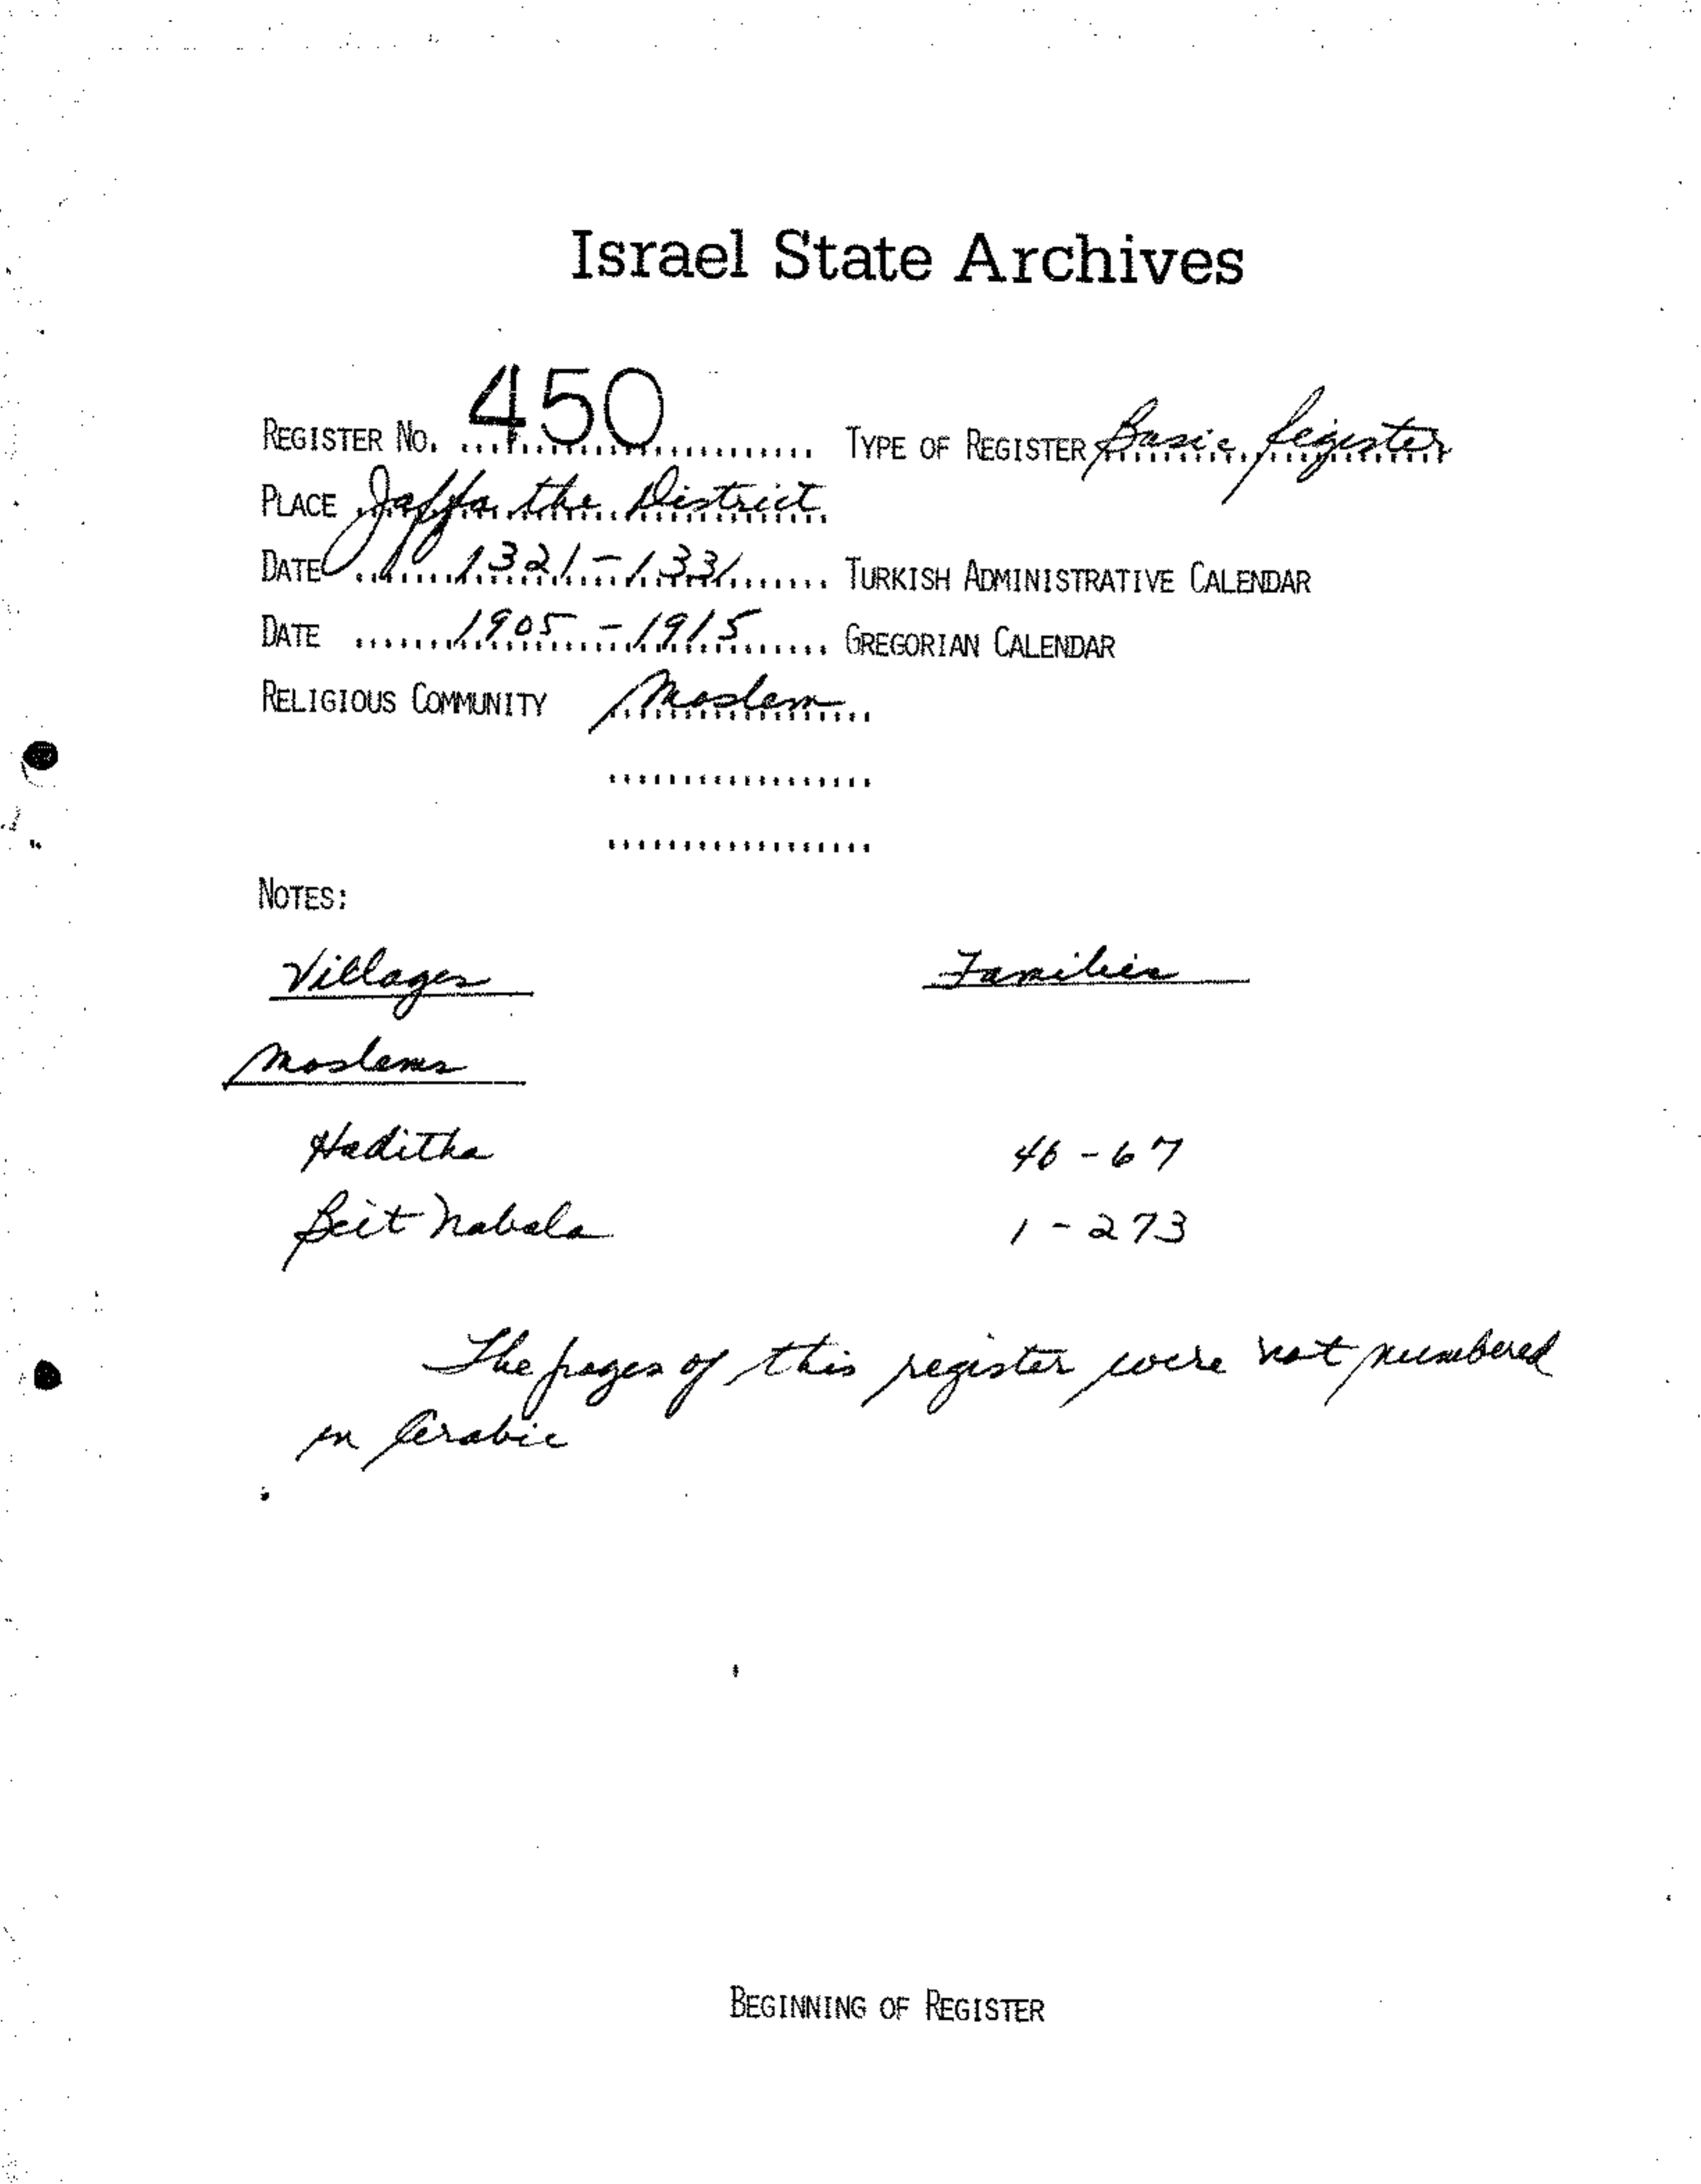 Israel State Archives
REGISTER NO. 450 TYPE OF REGISTER Basic Register
PLACE Jaffa the District
DATE 1321-1331 TURKISH ADMINISTRATIVE CALENDAR
DATE 1905-1915 GREGORIAN CALENDAR
RELIGIOUS COMMUNITY Moslem
NOTES:
Villages Families
Moslems
Haditha 46-67
Beit Nabala 1-273
The pages of this register were not numbered
in Arabic
BEGINNING OF REGISTER